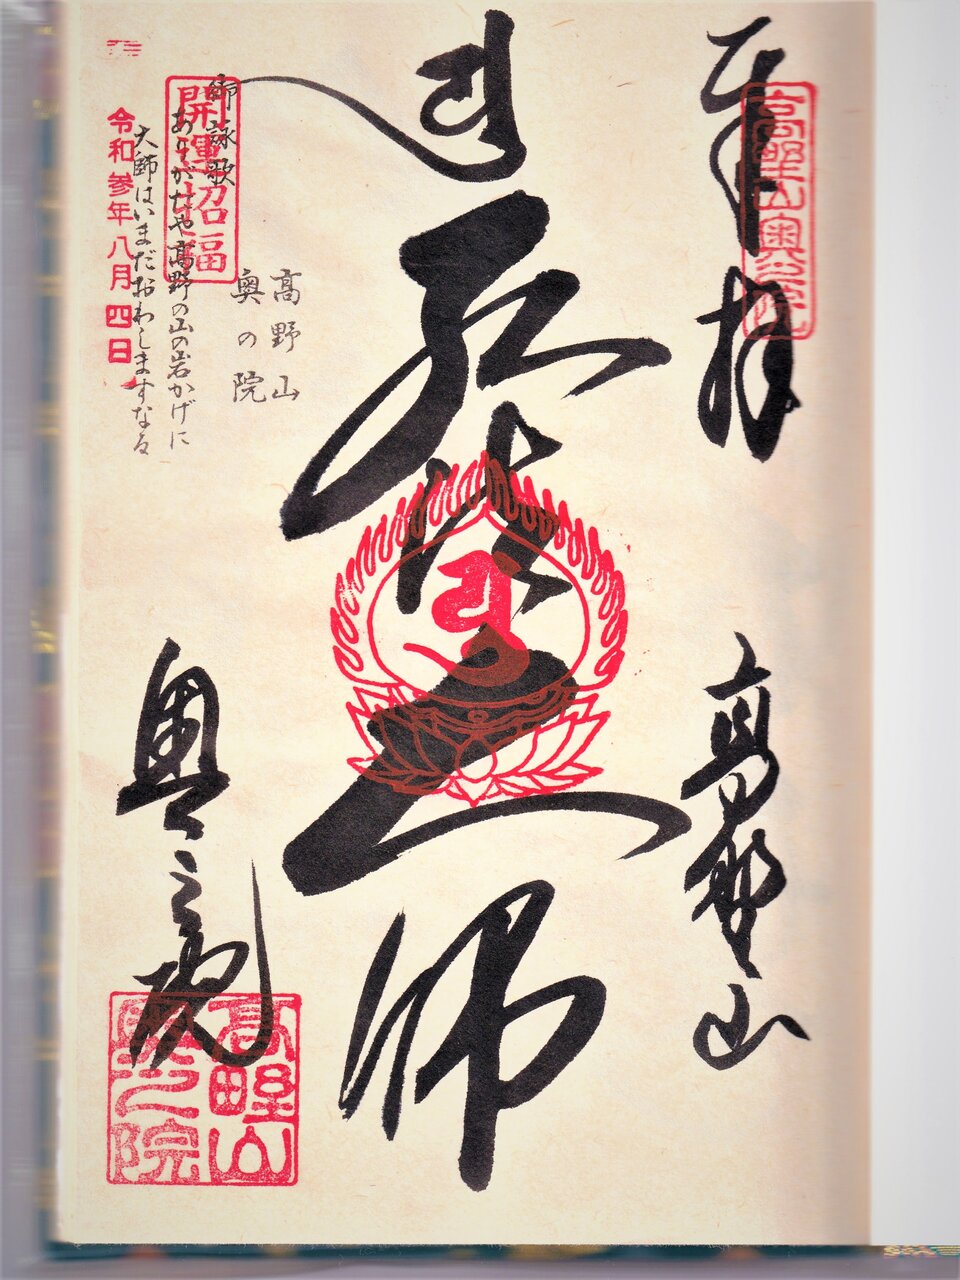 奉拝
高野山奥之院
高野山
弘法大師
高野山
奥の院
御詠歌
ありがたや高野の山の岩かげに
大師はいまだおわしますなる
開運招福
令和参年八月四日
奥之院
高野山
奥之院